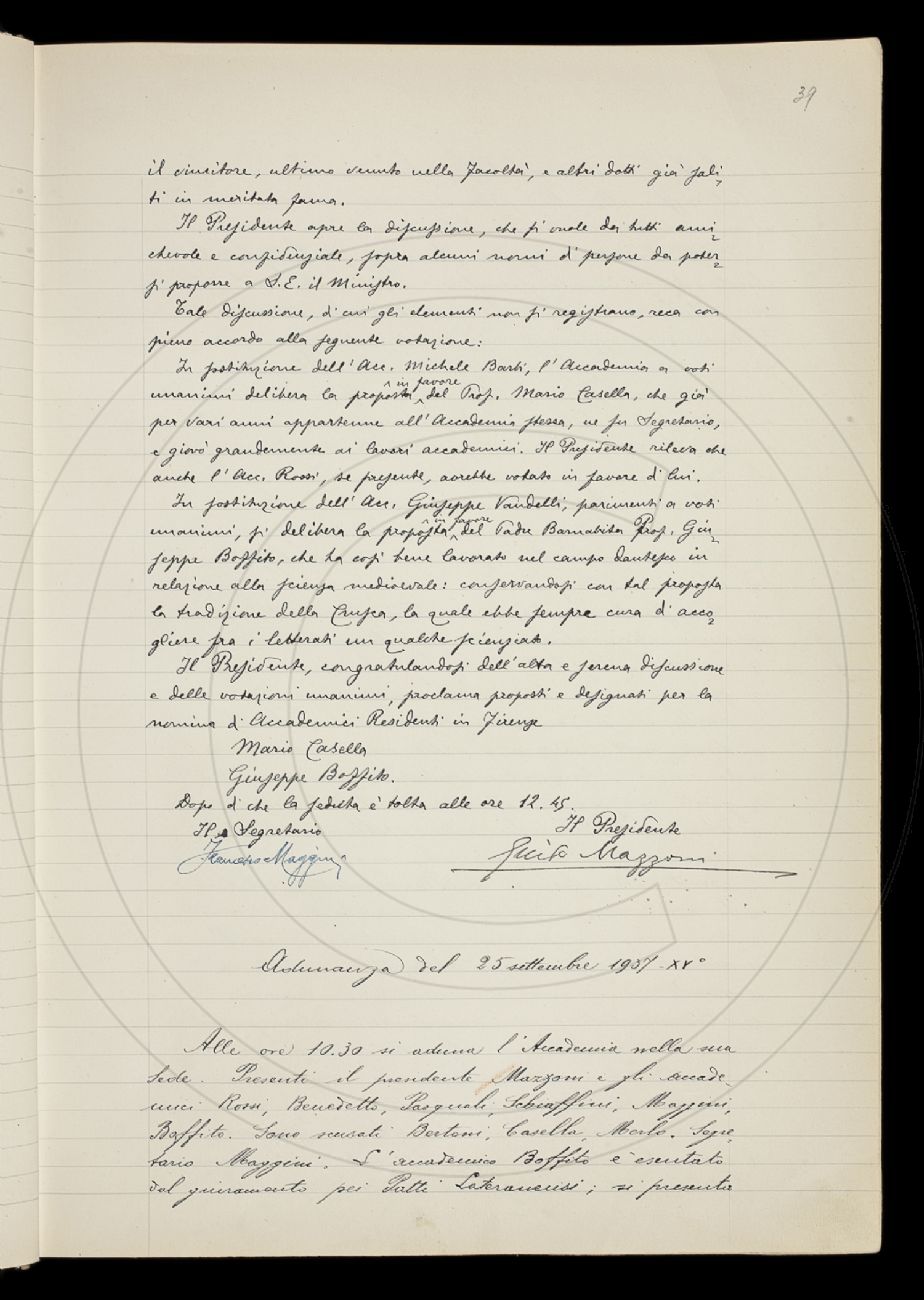 39
il vincitore, ultimo venuto nella Facoltà, e altri dotti già sali,
ti in meritata fama.
Il Presidente apre la discussione, che si vuole da tutti ami=
chevole e confidenziale, sopra alcuni nomi di persone da poter=
si proporre a S.E. il Ministro.
Tale discussione, di cui gli elementi non si registrano, reca con
pieno accordo alla seguente votazione:
In sostituzione dell'Acc. Michele Barbi, l'Accademia a voti
unanimi delibera la proposta in favore del Prof. Mario Casella, che già
per vari anni appartenne all'Accademia stessa, ne fu Segretario,
e giovò grandemente ai lavori accademici. Il Presidente rileva che
anche l'Acc. Rossi, se presente, avrebbe votato in favore di lui.
In sostituzione dell'Acc. Giuseppe Vandelli, parimenti a voti
unanimi, si delibera la proposta in favore del Padre Barnabita Prof. Giu=
seppe Boffito, che ha così bene lavorato nel campo dantesco in
relazione alla scienza medioevale: conservandosi con tal proposta
la tradizione della Crusca, la quale ebbe sempre cura di acco=
gliere fra i letterati un qualche scienziato.
Il Presidente, congratulandosi dell'alta e serena discussione
e delle votazioni unanimi, proclama proposti e designati per la
nomina di Accademici Residenti in Firenze
Mario Casella
Giuseppe Boffito.
Dopo di che la seduta è tolta alle ore 12.45.
Il Segretario Il Presidente
Francesco Maggini Guido Mazzoni
Adunanza del 25 settembre 1937-XV°
Alle ore 10.30 si aduna l'Accademia nella sua
sede. Presenti il presidente Mazzoni e gli accade-
mici Rossi, Benedetto, Pasquali, Schiaffini, Maggini,
Boffito. Sono scusati Bertoni, Casella, Merlo. Segre-
tario Maggini. L'accademico Boffito è esentato
dal giuramento pei Patti Lateranensi; si presenta